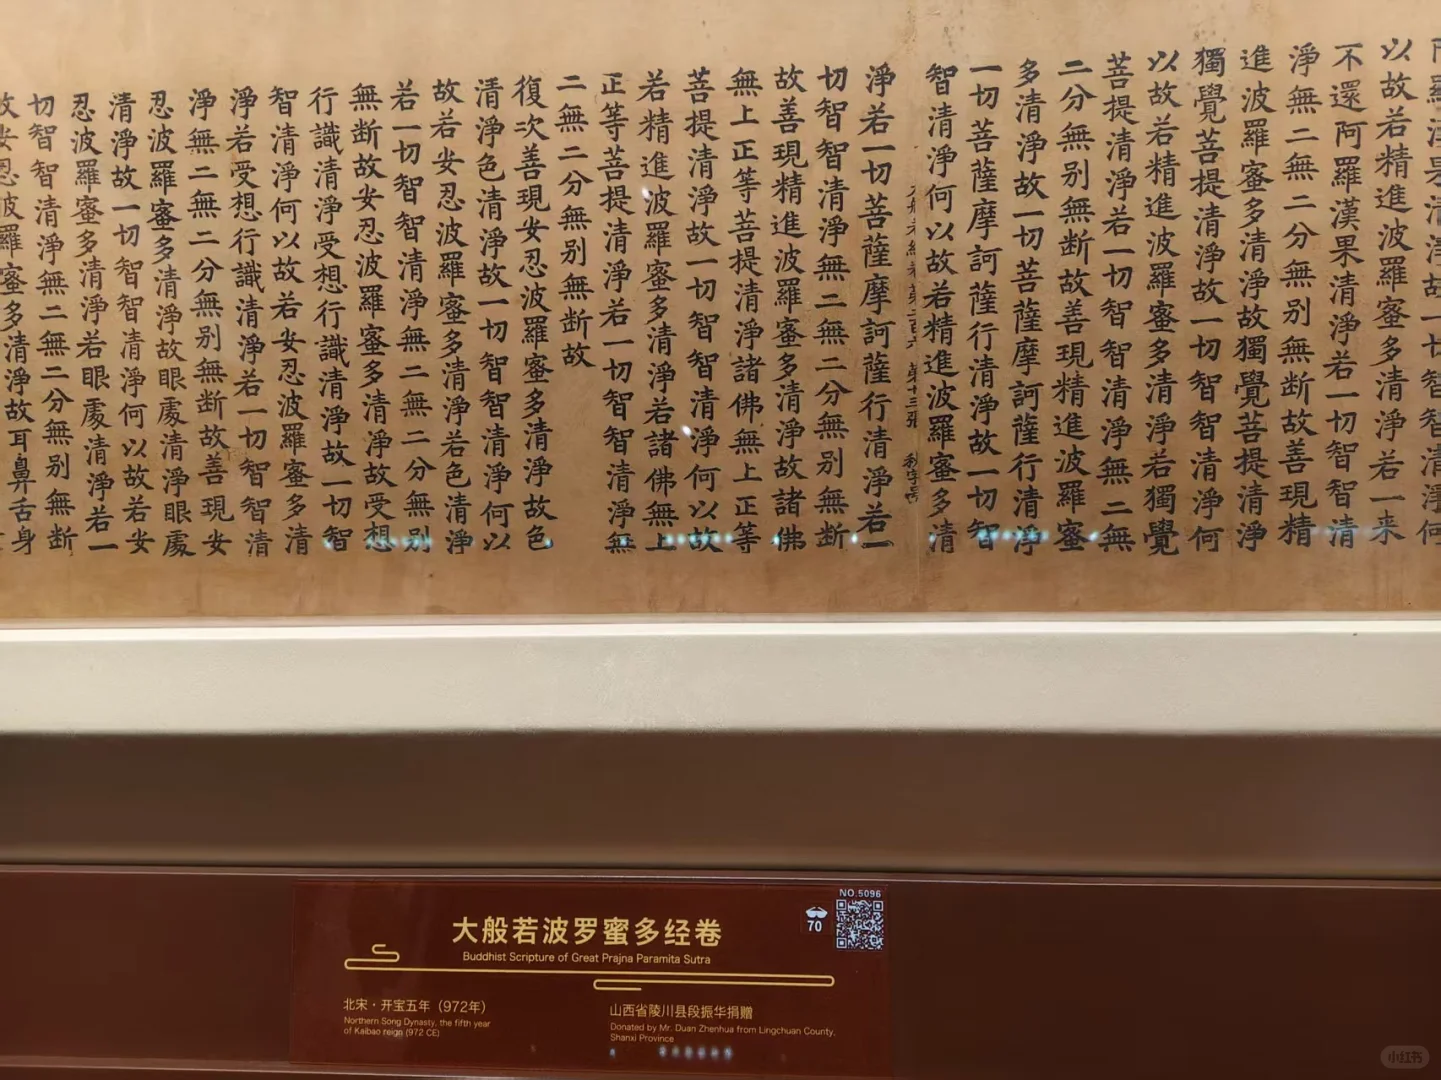 阿羅漢果清淨故一切智智清淨何
以故若精進波羅蜜多清淨若一来
不還阿羅漢果清淨若一切智智清
淨無二無二分無别無断故善現精
進波羅蜜多清淨故獨覺菩提清淨
獨覺菩提清淨故一切智智清淨何
以故若精進波羅蜜多清淨若獨覺
菩提清淨若一切智智清淨無二無
二分無别無断故善現精進波羅蜜
多清淨故一切菩薩摩訶薩行清淨
一切菩薩摩訶薩行清淨故一切智
智清淨何以故若精進波羅蜜多清
大般若經卷第二百六 第十三張
淨若一切菩薩摩訶薩行清淨若一
切智智清淨無二無二分無别無断
故善現精進波羅蜜多清淨故諸佛
無上正等菩提清淨諸佛無上正等
菩提清淨故一切智智清淨何以故
若精進波羅蜜多清淨若諸佛無上
正等菩提清淨若一切智智清淨無
二無二分無别無断故
復次善現安忍波羅蜜多清淨故色
清淨色清淨故一切智智清淨何以
故若安忍波羅蜜多清淨若色清淨
若一切智智清淨無二無二分無别
無断故安忍波羅蜜多清淨故受想
行識清淨受想行識清淨故一切智
智清淨何以故若安忍波羅蜜多清
淨若受想行識清淨若一切智智清
淨無二無二分無别無断故善現安
忍波羅蜜多清淨故眼處清淨眼處
清淨故一切智智清淨何以故若安
忍波羅蜜多清淨若眼處清淨若一
切智智清淨無二無二分無别無断
故安忍波羅蜜多清淨故耳鼻舌身
NO.5096
70
大般若波罗蜜多经卷
Buddhist Scripture of Great Prajna Paramita Sutra
北宋·开宝五年（972年）
Northern Song Dynasty, the fifth year
of Kaibao reign (972 CE)
山西省陵川县段振华捐赠
Donated by Mr. Duan Zhenhua from Lingchuan County,
Shanxi Province
小红书